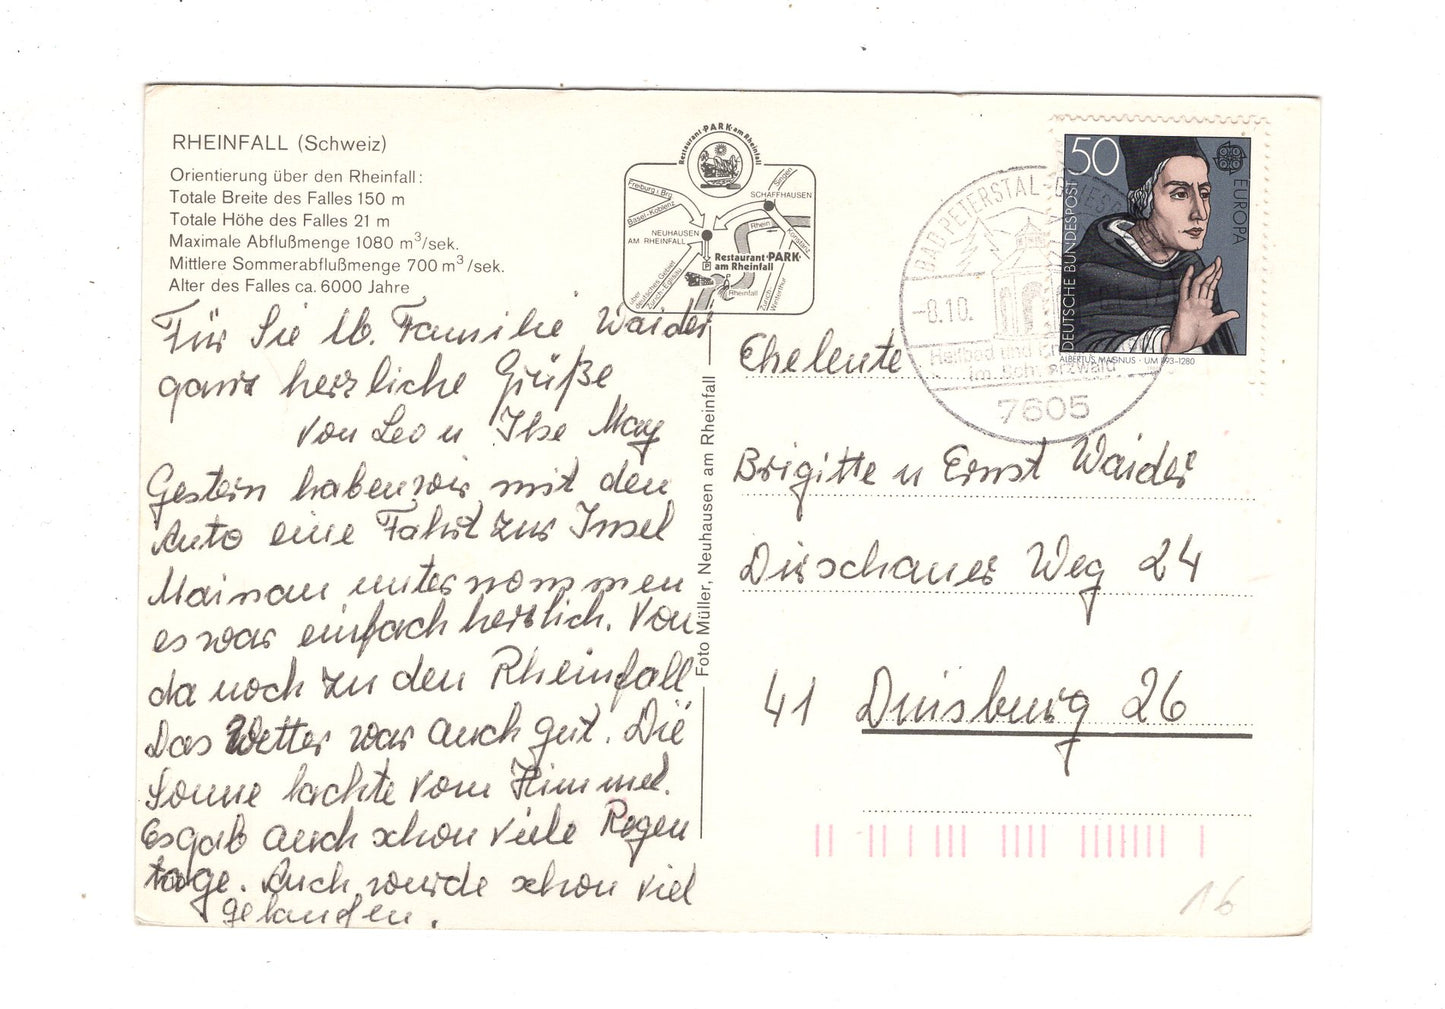 RHEINFALL (Schweiz)
Orientierung über den Rheinfall:
Totale Breite des Falles 150 m
Totale Höhe des Falles 21 m
Maximale Abflußmenge 1080 m³/sek.
Mittlere Sommerabflußmenge 700 m³/sek.
Alter des Falles ca. 6000 Jahre
Restaurant PARK am Rheinfall
Freiburg i Brg
Basel-Koblenz
Singen
SCHAFFHAUSEN
NEUHAUSEN
AM RHEINFALL
Rhein
Konstanz
P
Restaurant PARK
am Rheinfall
über
deutsches Gebiet
Zürich Eglisau
Rheinfall
Zürich
Winterthur
50
DEUTSCHE BUNDESPOST
EUROPA
ALBERTUS MAGNUS · UM 1193-1280
BAD PETERSTAL-GRIESB
-8.10.
Heilbad und
im Schwarzwald
7605
Für Sie lb. Familie Waider
ganz herzliche Grüße
von Leo u Ilse May
Gestern haben wir mit den
Auto eine Fahrt zur Insel
Mainau unternommen
es war einfach herrlich. Von
da noch zu den Rheinfall
Das Wetter war auch gut. Die
Sonne lachte vom Himmel.
Es gab auch schon viele Regen
tage. Auch wurde schon viel
gelaufen.
Foto Müller, Neuhausen am Rheinfall
Eheleute
Brigitte u Ernst Waider
Dirschauer Weg 24
41 Duisburg 26
16